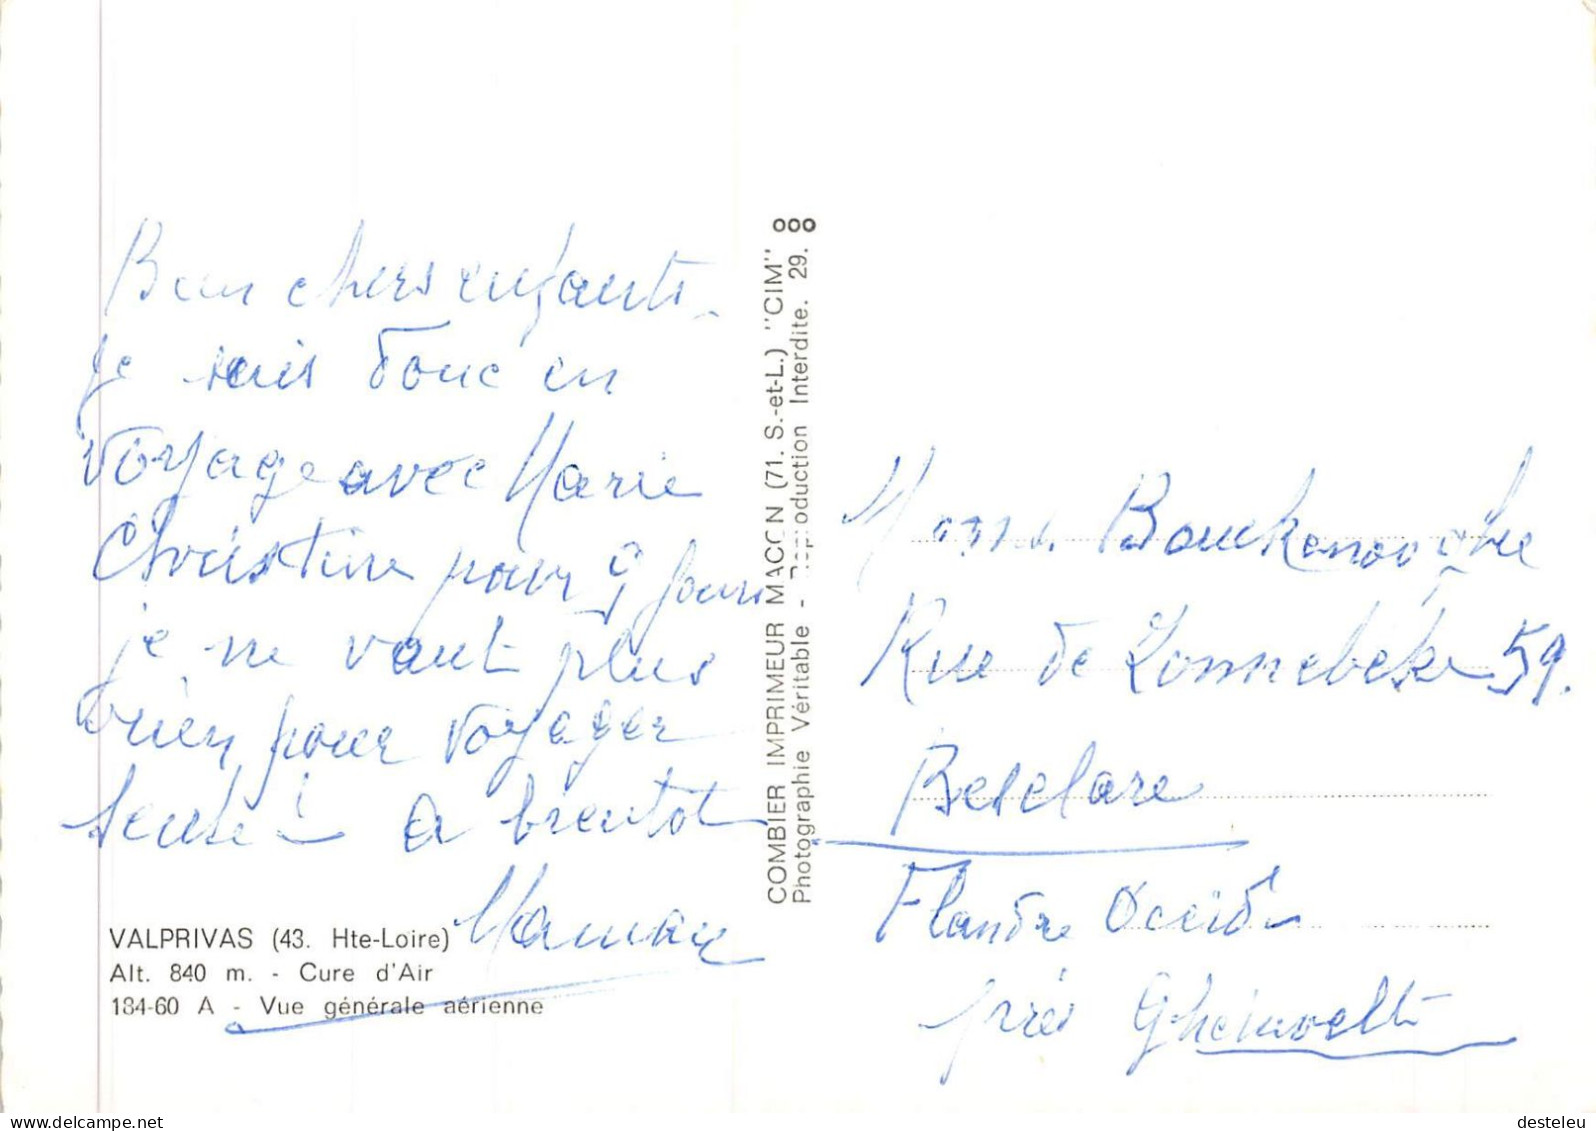 Bien chers enfants.
je suis donc en
voyage avec Marie
Christine pour 9 jours
je ne vaut plus
rien pour voyager
seule ! a bientot
Maman
VALPRIVAS (43. Hte-Loire)
Alt. 840 m. - Cure d'Air
184-60 A - Vue générale aérienne
COMBIER IMPRIMEUR MACON (71. S.-et-L.) "CIM"
Photographie Véritable - Reproduction Interdite. 29.
Rue de Zonnebeke 59.
Beselare
Flandre Occid
près Gheluvelt
desteleu